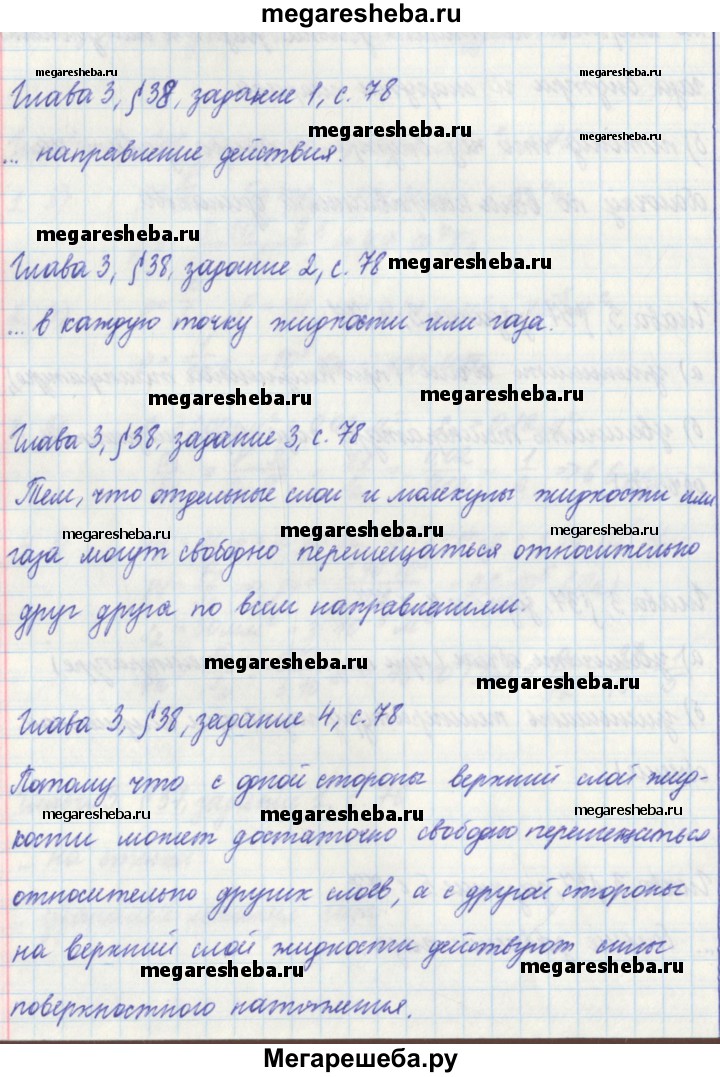 megaresheba.ru
megaresheba.ru
megaresheba.ru
Глава 3, § 38, задание 1, с. 78
megaresheba.ru
megaresheba.ru
... направление действия.
megaresheba.ru
Глава 3, § 38, задание 2, с. 78
megaresheba.ru
... в каждую точку жидкости или газа.
megaresheba.ru
megaresheba.ru
Глава 3, § 38, задание 3, с. 78
Тем, что отдельные слои и молекулы жидкости или
megaresheba.ru
megaresheba.ru
megaresheba.ru
газа могут свободно перемещаться относительно
друг друга по всем направлениям.
megaresheba.ru
megaresheba.ru
Глава 3, § 38, задание 4, с. 78
Потому что с одной стороны верхний слой жид-
megaresheba.ru
megaresheba.ru
megaresheba.ru
кости может достаточно свободно перемещаться
относительно других слоев, а с другой стороны
на верхний слой жидкости действуют силы
megaresheba.ru
megaresheba.ru
поверхностного натяжения.
Мегарешеба.ру